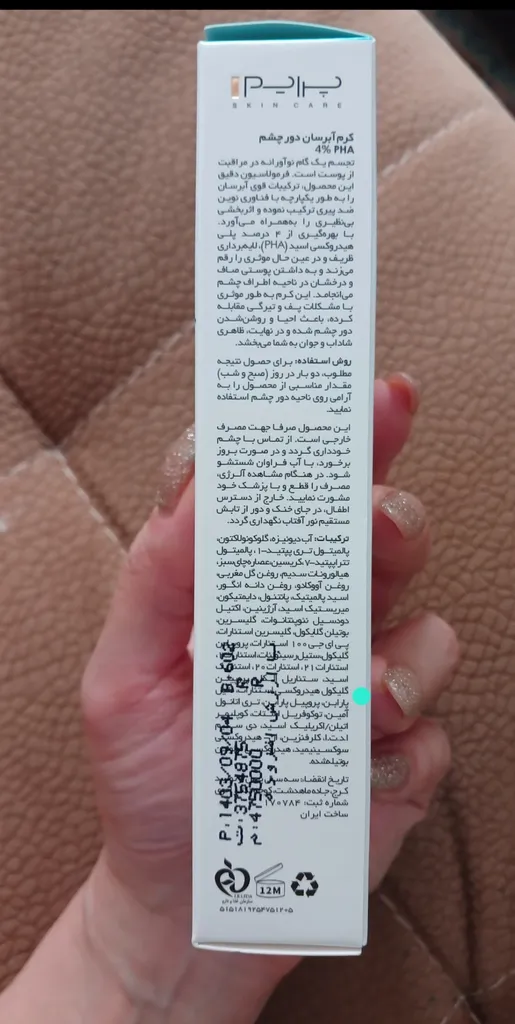 پرایم
SKIN CARE
کرم آبرسان دور چشم
4% PHA
تجسم یک گام نوآورانه در مراقبت
از پوست است. فرمولاسیون دقیق
این محصول، ترکیبات قوی آبرسان
را به طور یکپارچه با فناوری نوین
ضد پیری ترکیب نموده و اثربخشی
بی‌نظیری را به‌همراه می‌آورد.
با بهره‌گیری از ۴ درصد پلی
هیدروکسی اسید (PHA)، لایه‌برداری
ظریف و در عین حال موثری را رقم
می‌زند و به داشتن پوستی صاف
و درخشان در ناحیه اطراف چشم
می‌انجامد. این کرم به طور موثری
با مشکلات پف و تیرگی مقابله
کرده، باعث احیا و روشن‌شدن
دور چشم شده و در نهایت، ظاهری
شاداب و جوان به شما می‌بخشد.
روش استفاده: برای حصول نتیجه
مطلوب، دو بار در روز (صبح و شب)
مقدار مناسبی از محصول را به
آرامی روی ناحیه دور چشم استفاده
نمایید.
این محصول صرفا جهت مصرف
خارجی است. از تماس با چشم
خودداری گردد و در صورت بروز
برخورد، با آب فراوان شستشو
شود. در هنگام مشاهده آلرژی،
مصرف را قطع و با پزشک خود
مشورت نمایید. خارج از دسترس
اطفال، در جای خنک و دور از تابش
مستقیم نور آفتاب نگهداری گردد.
ترکیبات: آب دیونیزه، گلوکونولاکتون،
پالمیتول تری پپتید-۱، پالمیتول
تتراپپتید-۷، کریسین، عصاره‌چای‌سبز،
هیالورونات سدیم، روغن گل مغربی،
روغن آووکادو، روغن دانه انگور،
اسید پالمیتیک، پانتنول، دایمتیکون،
میریستیک اسید، آرژینین، اکتیل
دودسیل نئوپنتانوات، گلیسرین،
بوتیلن گلایکول، گلیسرین استئارات،
پی ای جی ۱۰۰ استئارات،
استئارات ۲۱، استئارات ۲۰،
اسید، ستئاریل
گلیکول هیدروکسی
پارابن، پروپیل تری اتانول
آمین، توکوفریل کوپلیمر
اتیلن/اکریلیک اسید، دی
ا.د.ت.ا، کلرفنزین، هیدروکسی
سوکسینیمید،
بوتیله‌شده.
تاریخ انقضاء: سه سال
کرج، جاده ماهدشت،
شماره ثبت:
ساخت ایران
P:1403/09/04 B:602
ت:3754875 R
م:4750000 R
12M
سازمان غذا و دارو